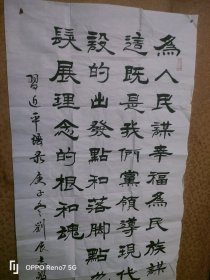 為人民謀幸福為民族謀
這既是我們黨領導現代
設的出發點和落脚點
發展理念的根和魂
習近平語录 庚子冬 劉